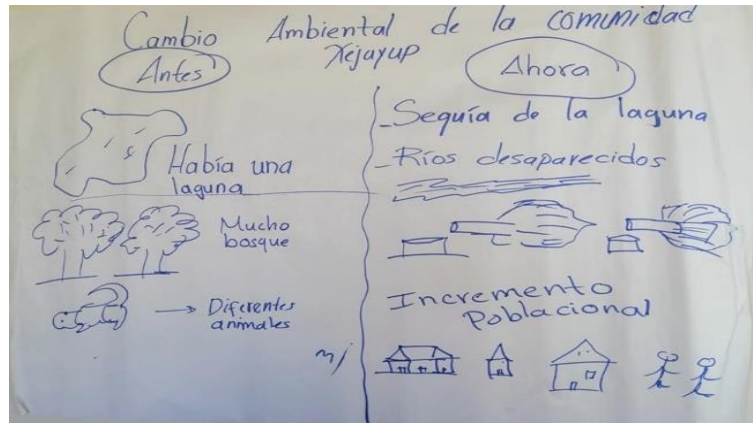 Cambio Ambiental de la comunidad
Xejuyup
Antes
Había una
laguna
Mucho
bosque
→ Diferentes
animales
Ahora
- Sequía de la laguna
- Ríos desaparecidos
Incremento
Poblacional